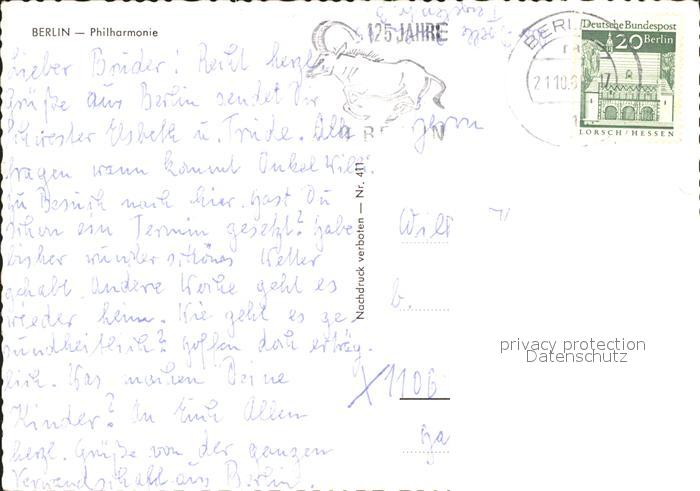 BERLIN — Philharmonie
Lieber Bruder. Recht herzl.
Grüße aus Berlin sendet Dir
Schwester Elsbeth u. Trude. Alle
fragen wann kommt Onkel Willi
zu Besuch nach hier. Hast Du
schon ein Termin gesetzt? Habe
bisher wunderschönes Wetter
gehabt. Andere Woche geht es
wieder heim. Wie geht es ge-
sundheitlich? Hoffen doch erträg-
lich. Was machen Deine
Kinder? An Euch Allen
herzl. Grüße von der ganzen
Verwandschaft aus Berlin.
Nachdruck verboten — Nr. 411
125 JAHRE
BERLIN
21.10.
Deutsche Bundespost
20 Berlin
LORSCH / HESSEN
Herrn
Will
b.
X 1106
privacy protection
Datenschutz